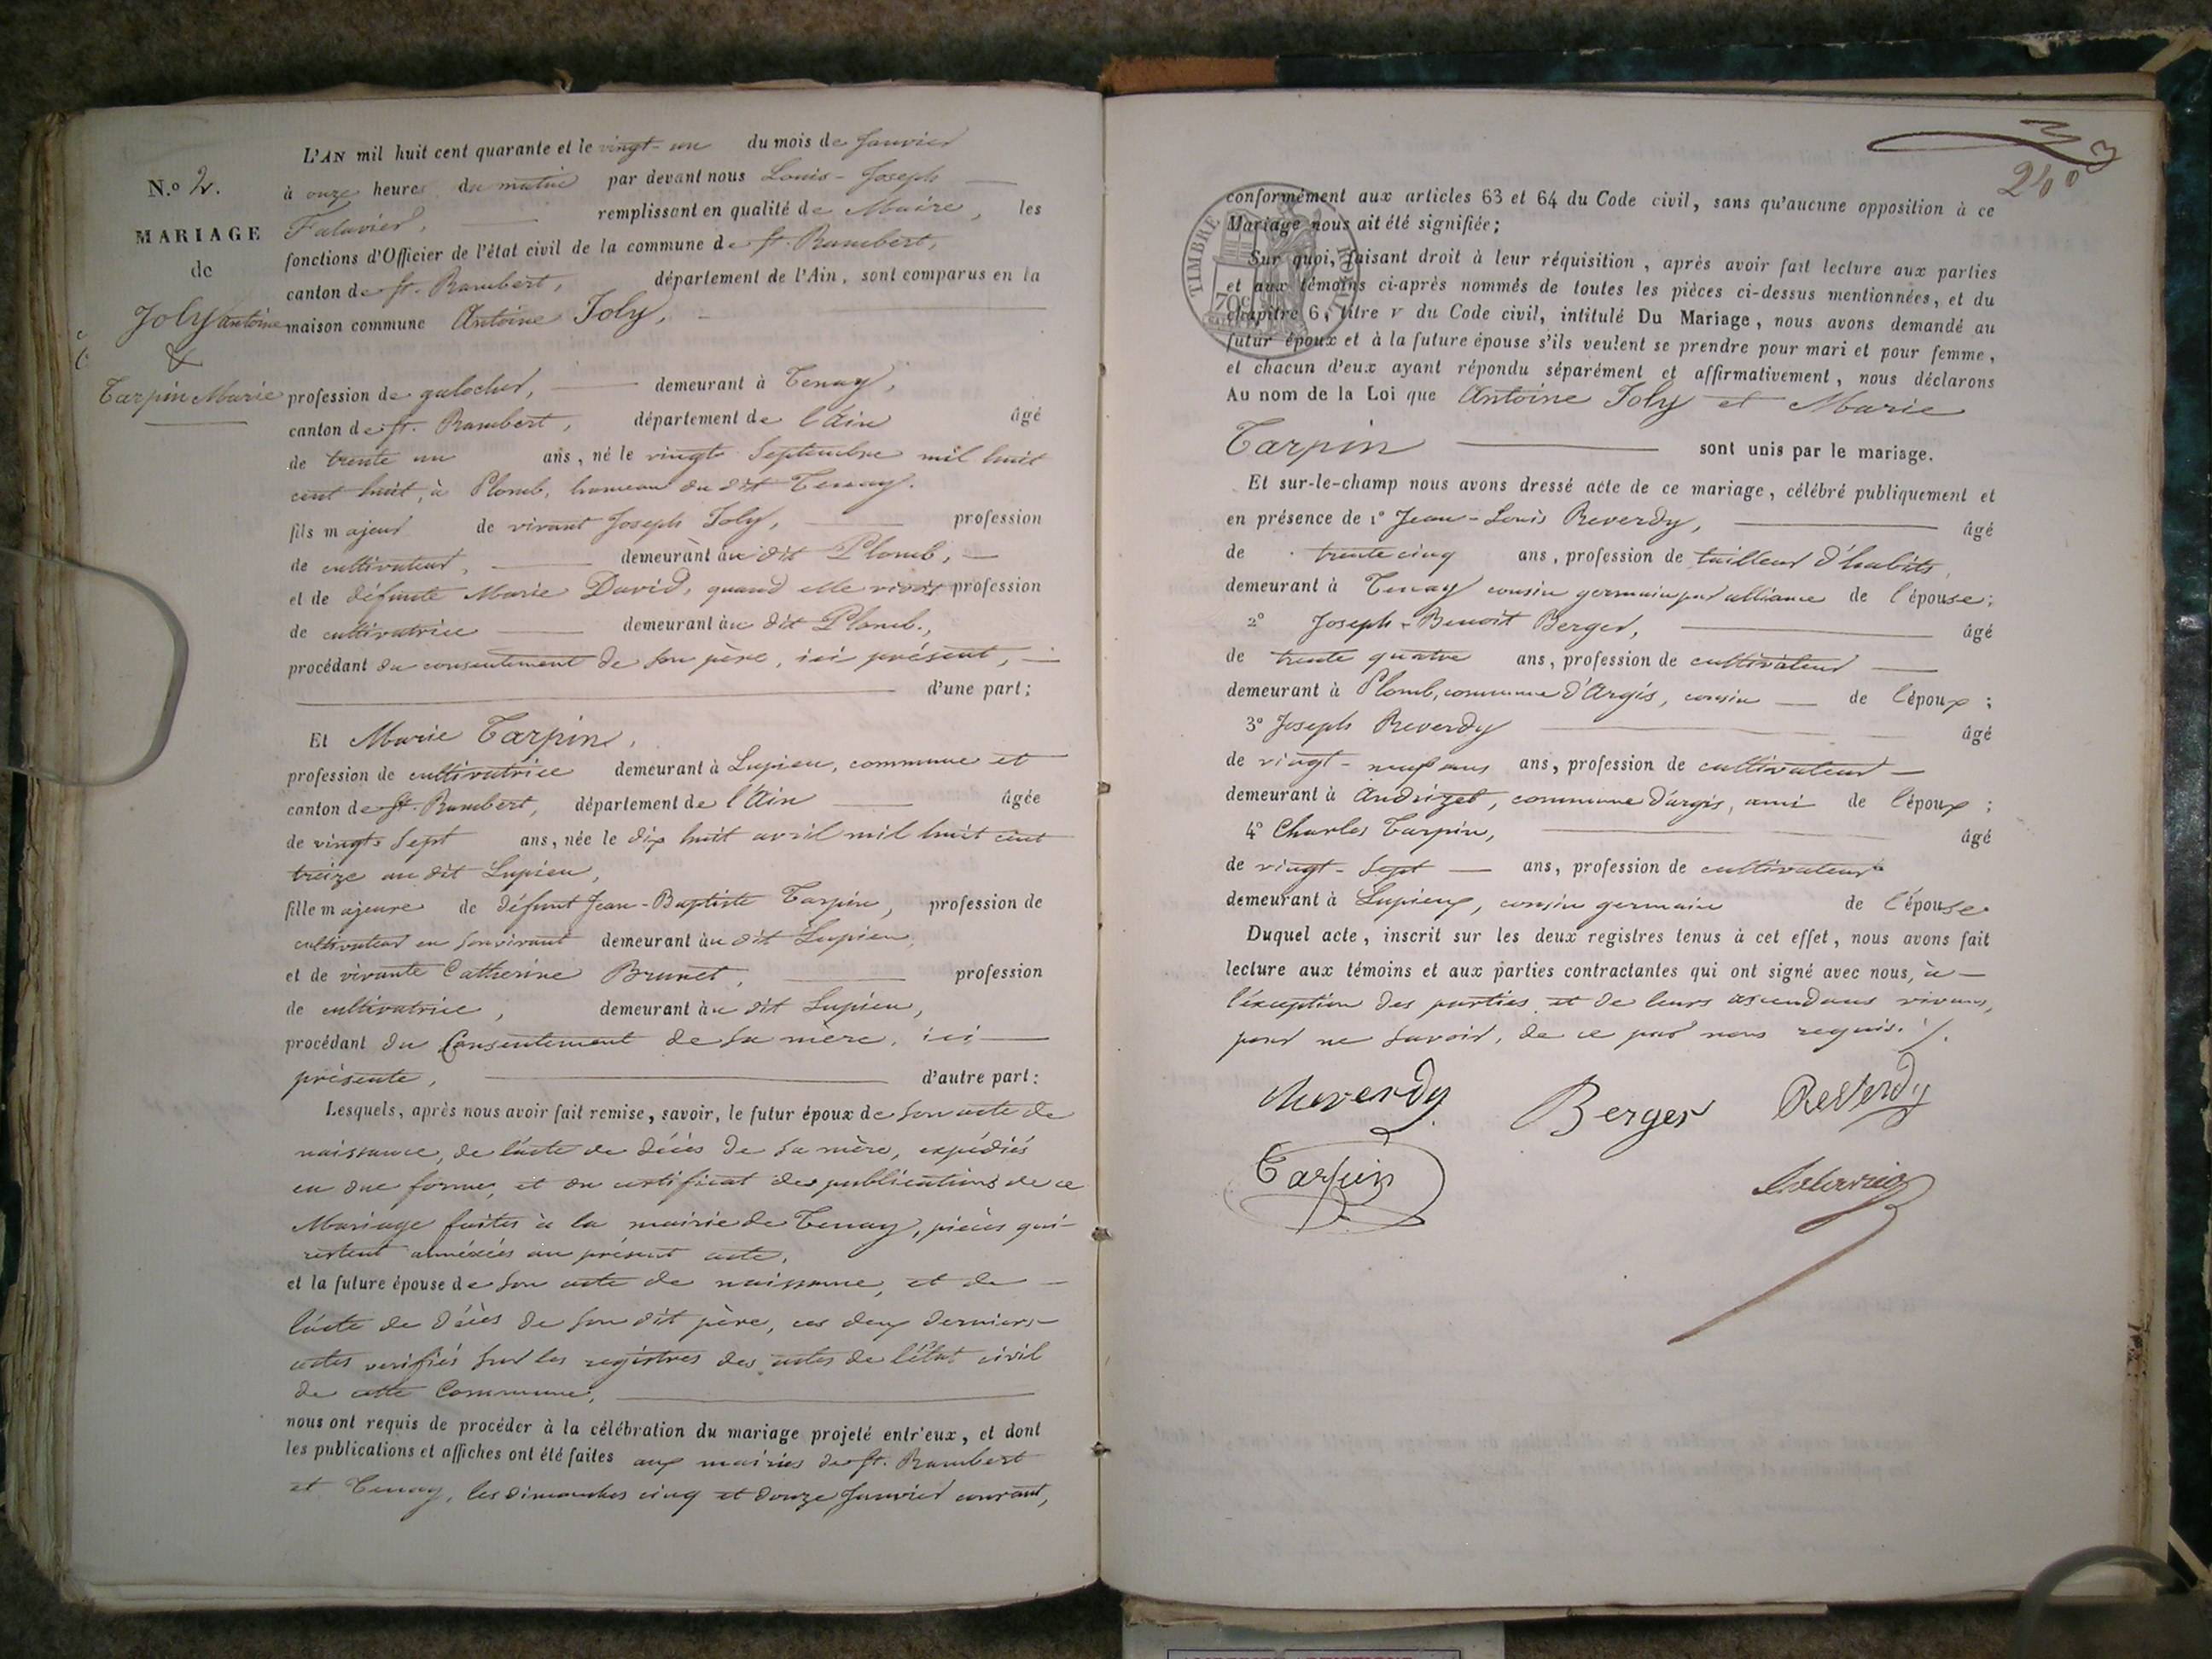 N.o 2.
MARIAGE
de
Joly antoine
&
Tarpin Marie
L'AN mil huit cent quarante et le vingt-un du mois de Janvier
à onze heures du matin par devant nous Louis-Joseph
Falavier, remplissant en qualité de Maire, les
fonctions d'Officier de l'état civil de la commune de St. Rambert,
canton de St. Rambert, département de l'Ain, sont comparus en la
maison commune Antoine Joly,
profession de galocher, demeurant à Tenay,
canton de St. Rambert, département de l'Ain âgé
de trente un ans, né le vingt Septembre mil huit
cent huit, à Plomb, hameau du dit Tenay.
fils majeur de vivant Joseph Joly, profession
de cultivateur, demeurant au dit Plomb,
et de défunte Marie David, quand elle vivait profession
de cultivatrice demeurant au dit Plomb.,
procédant du consentement de son père, ici présent,
d'une part;
Et Marie Tarpin,
profession de cultivatrice demeurant à Lupieu, commune et
canton de St. Rambert, département de l'Ain âgée
de vingt-Sept ans, née le dix huit avril mil huit cent
treize au dit Lupieu,
fille majeure de défunt Jean-Baptiste Tarpin, profession de
cultivateur en son vivant demeurant au dit Lupieu,
et de vivante Catherine Brunet, profession
de cultivatrice, demeurant au dit Lupieu,
procédant du Consentement de sa mère, ici
présente, d'autre part:
Lesquels, après nous avoir fait remise, savoir, le futur époux de son acte de
naissance, de l'acte de décès de sa mère, expédiés
en due forme, et du certificat des publications de ce
Mariage faites à la mairie de Tenay, pièces qui
restent annéxées au présent acte,
et la future épouse de son acte de naissance, et de
l'acte de décès de son dit père, ces deux derniers
actes verifiés sur les registres des actes de l'état civil
de cette Commune,
nous ont requis de procéder à la célébration du mariage projeté entr'eux, et dont
les publications et affiches ont été faites aux mairies de St. Rambert
et Tenay, les dimanches cinq et douze Janvier courant,
TIMBRE ROYAL
70c
conformément aux articles 63 et 64 du Code civil, sans qu'aucune opposition à ce
Mariage nous ait été signifiée;
Sur quoi, faisant droit à leur réquisition, après avoir fait lecture aux parties
et aux témoins ci-après nommés de toutes les pièces ci-dessus mentionnées, et du
chapitre 6, titre v du Code civil, intitulé Du Mariage, nous avons demandé au
futur époux et à la future épouse s'ils veulent se prendre pour mari et pour femme,
et chacun d'eux ayant répondu séparément et affirmativement, nous déclarons
Au nom de la Loi que Antoine Joly et Marie
Tarpin sont unis par le mariage.
Et sur-le-champ nous avons dressé acte de ce mariage, célébré publiquement et
en présence de 1° Jean-Louis Reverdy, âgé
de trente cinq ans, profession de tailleur d'habits,
demeurant à Tenay cousin germain par alliance de l'épouse;
2° Joseph-Benoit Berger, âgé
de trente quatre ans, profession de cultivateur
demeurant à Plomb, commune d'Argis, cousin de l'époux;
3° Joseph Reverdy âgé
de vingt-neuf ans ans, profession de cultivateur
demeurant à Andrizet, commune d'argis, ami de l'époux;
4° Charles Tarpin, âgé
de vingt-Sept ans, profession de cultivateur
demeurant à Lupieux, cousin germain de l'épouse
Duquel acte, inscrit sur les deux registres tenus à cet effet, nous avons fait
lecture aux témoins et aux parties contractantes qui ont signé avec nous, à
l'éxception des parties et de leurs ascendans vivans,
pour ne savoir, de ce par nous requis./.
Reverdy Berger Reverdy
Tarpin